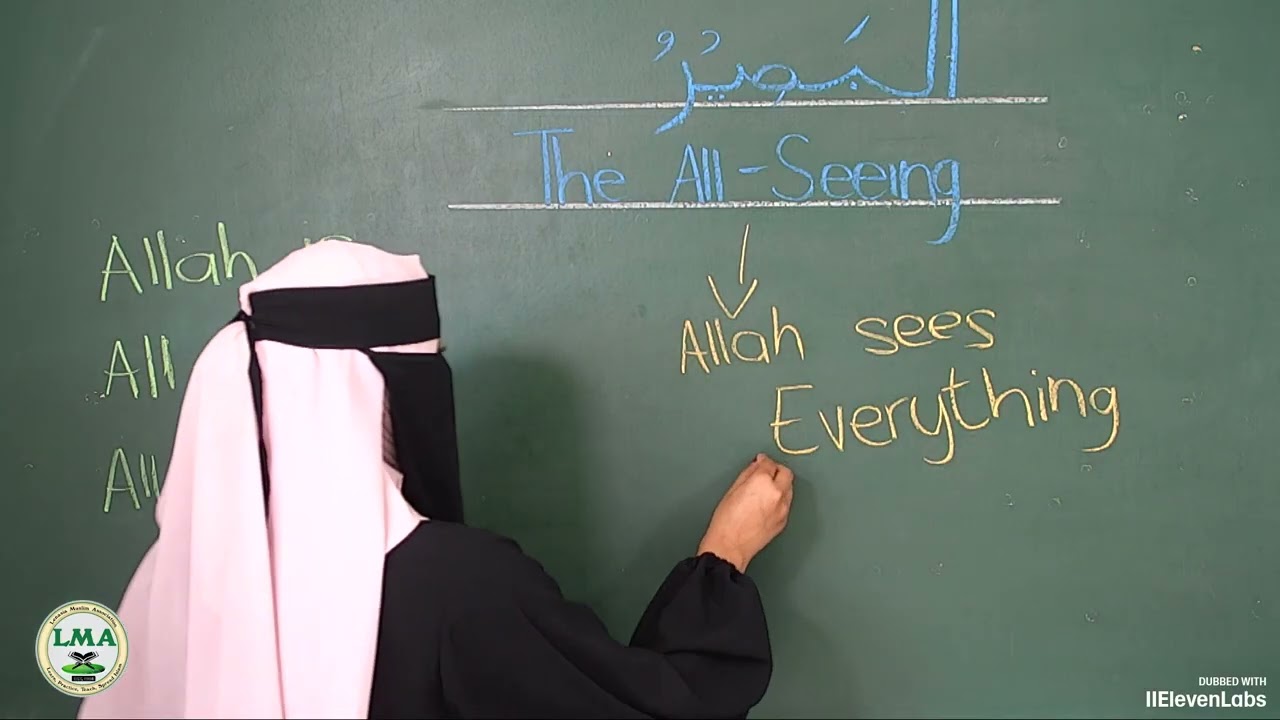 البَصِيْرُ
The All-Seeing
Allah is
All
All
Allah sees
Everything
Lenasia Muslim Association
LMA
Learn, Practice, Teach, Spread Islam
DUBBED WITH
IIElevenLabs